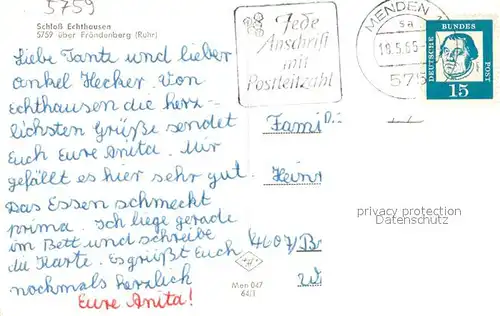 5759
Schloß Echthausen
5759 über Fröndenberg (Ruhr)
Liebe Tante und lieber
onkel Hecker. Von
Echthausen die herz-
lichsten Grüße sendet
Euch Eure Anita. Mir
gefällt es hier sehr gut.
Das Essen schmeckt
prima. Ich liege gerade
im Bett und schreibe
die Karte. Es grüßt Euch
nochmals herzlich
Eure Anita!
Jede
Anschrift
mit
Postleitzahl
MENDEN 1
sa
19.5.65
575
DEUTSCHE BUNDES POST
15
Fami
Heinr
4607/B
W
Men 047
64/1
privacy protection
Datenschutz